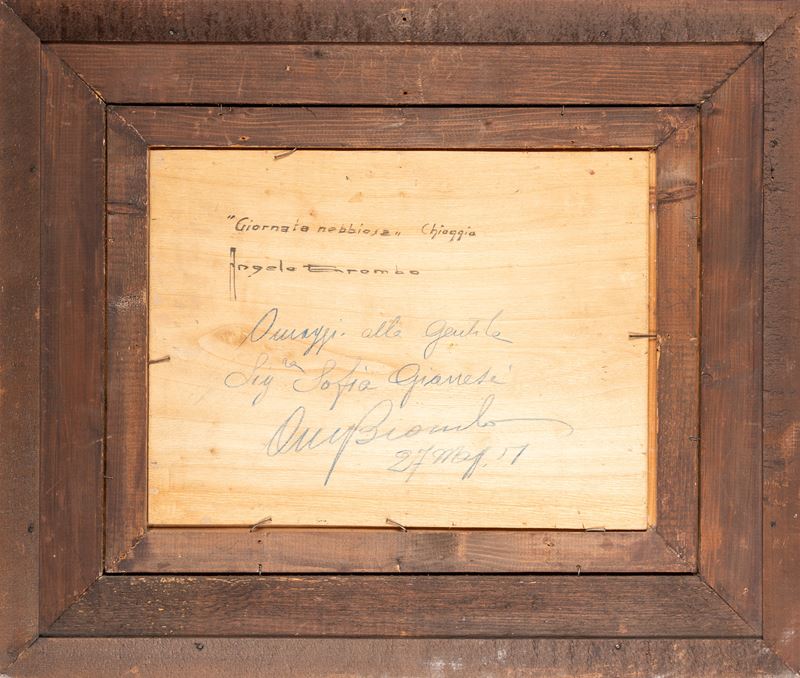 "Giornata nebbiosa„ Chioggia
Angelo Brombo
Omaggi alla Gentile
Sig.ra Sofia Gianesi
27 Mag. 51